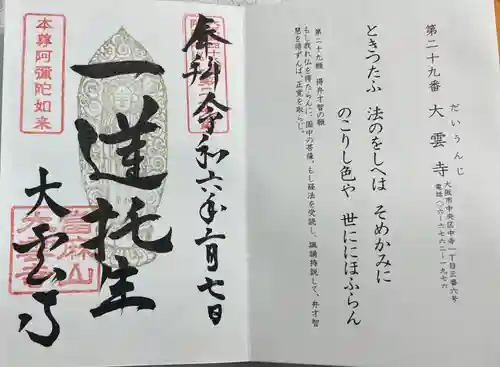 第二十九番 大雲寺
だいうんじ
大阪市中央区中寺一丁目三番六号
電話〇六－六七六二－一九七六
ときつたふ 法のをしへは そめかみに
のこりし色や 世ににほふらん
第二十九願 得弁才智の願
もし我れ仏を得たらんに、国中の菩薩、もし経法を受読し、諷誦持説して、弁才智
慧を得ずんば、正覚を取らじ。
奉拝 令和六年二月七日
一蓮托生
大雲寺
本尊阿彌陀如来
當麻山
大雲寺